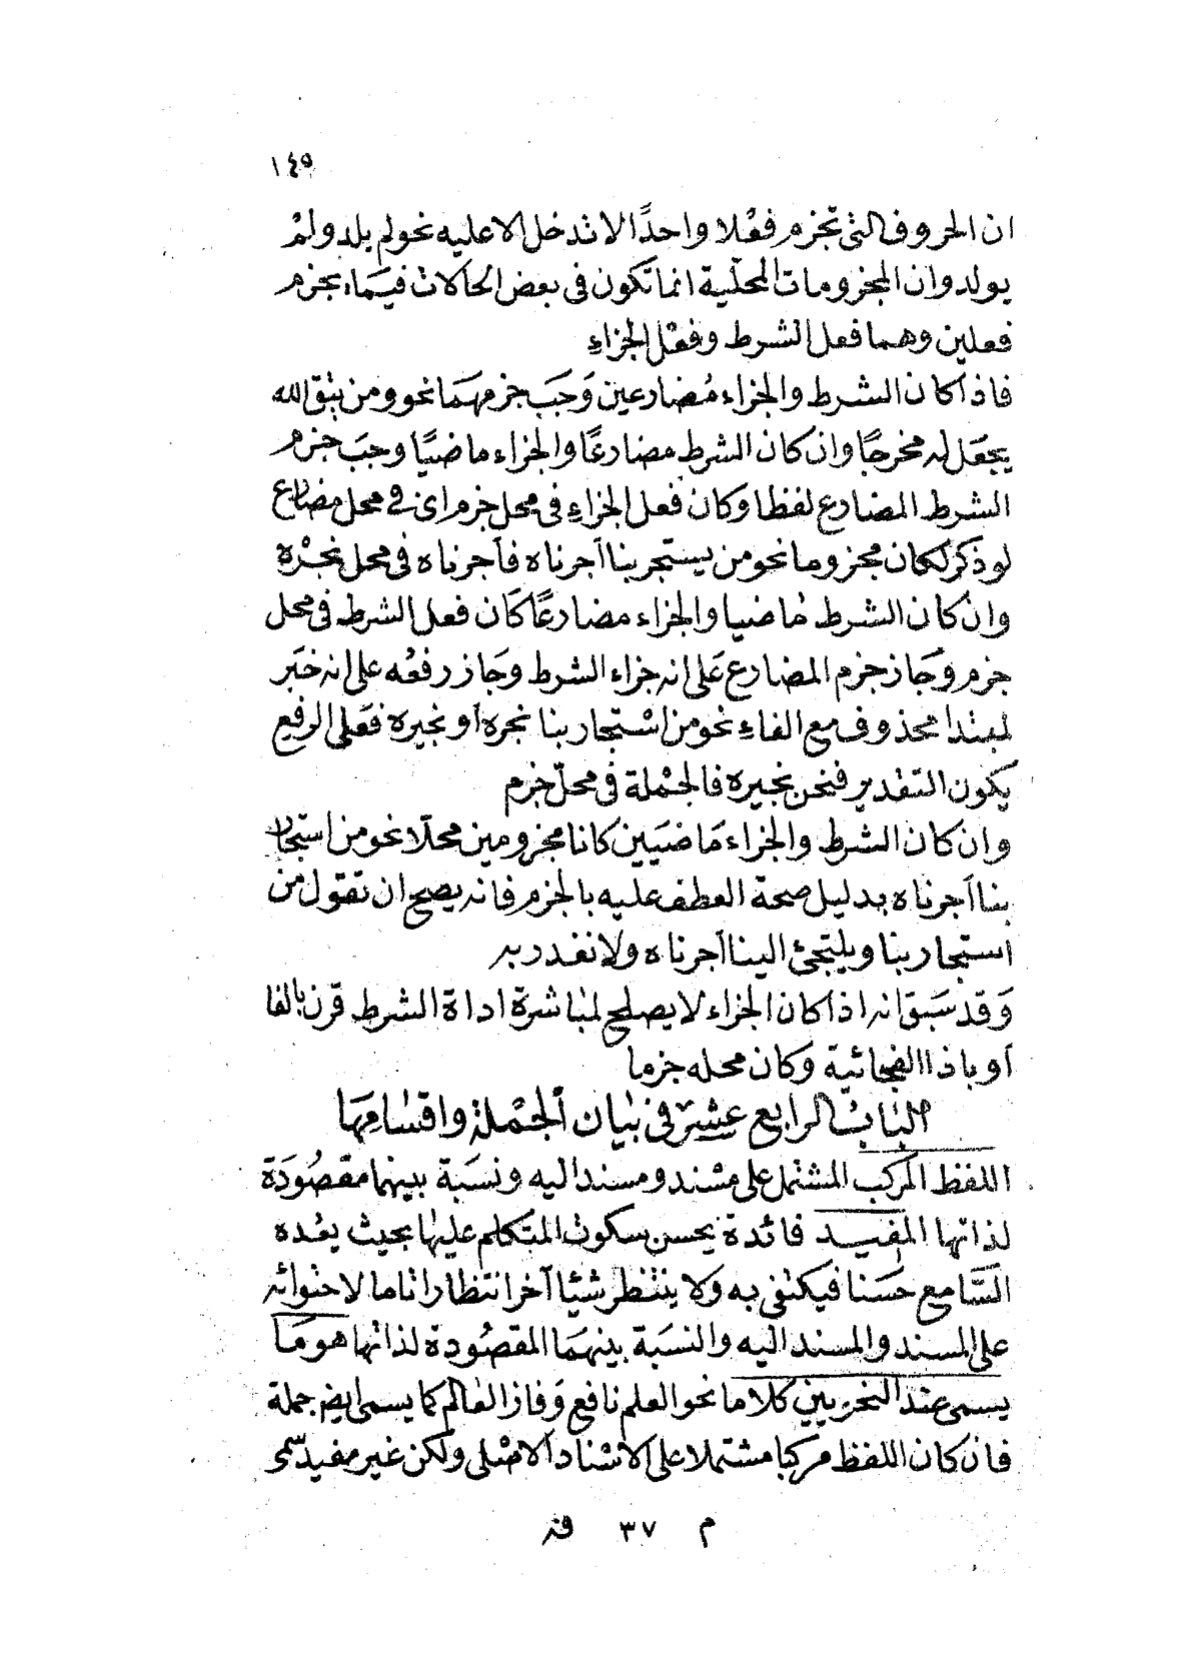 ١٤٥
ان الحروف التى تجزم فعْلا واحدًا لا تدخل الا عليه نحو لم يلد ولمْ
يولد وان المجزومات المحلّية انما تكون فى بعض الحالات فيمَا يجزم
فعلين وهما فعل الشرط وفعْل الجزاءِ
فاذا كان الشرط والجزاء مُضارعين وَجَب جزمهَما نحو ومن يتق الله
يجعَل له مخرجًا وان كان الشرط مضارعًا والجزاء ماضيًا وجبَ جزم
الشرط المضارع لفظا وكان فعل الجزاءِ فى محل جزم اى فى محل مضارع
لو ذكر لكان مجزوما نحو من يستجر بنا اَجرناه فاَجرناه فى محل نجْره
وان كان الشرط ماضيا والجزاء مضارعًا كَان فعل الشرط فى محل
جزم وَجَاز جزم المضارع عَلى انه جزاء الشرط وجَاز رفعُه على انه خبَر
لمبتدا محذوف مع الفاءِ نحو من اسْتجار بنا نجره أو نجيره فعَلى الرفع
يكون التقدير فنحن نجيره فالجْملة فى محلّ جزم
وان كان الشرط والجزاء مَاضيَين كانا مجزومين محلّا نحو من استجار
بنا اَجرناه بدليل صحة العطف عليه بالجزم فانه يصح ان تقول من
استجار بنا ويلتجئ الينا اَجرناه ولا نغدر به
وَقد سَبق انه اذا كان الجزاء لا يصلح لمباشرة اداة الشرط قرن بالفا
أو باذا الفجائية وكان محله جزما
البَابُ الرابع عشر فى بيَان الجْملة واقسَامِهَا
اللفظ المركب المشتمل على مسْند ومسند اليه ونسَبة بينهما مقصُودَة
لذاتها المفيد فائدة يحسن سكوت المتكلم عليها بحيث يعُده
السَّامع حسَنا فيكتفى به ولا ينتظر شيْا آخر انتظارا تاما لاحتوائه
على المسند والمسند اليه والنسَبة بينهمَا المقصُودة لذاتها هو مَا
يسمى عند النحويين كلاما نحو العلم نافع وَفاز العَالم كما يسمى ايض جملة
فان كان اللفظ مركبا مشتملا على الاسْناد الاصْلى ولكن غير مفيد سّمى
م ٣٧ قنه